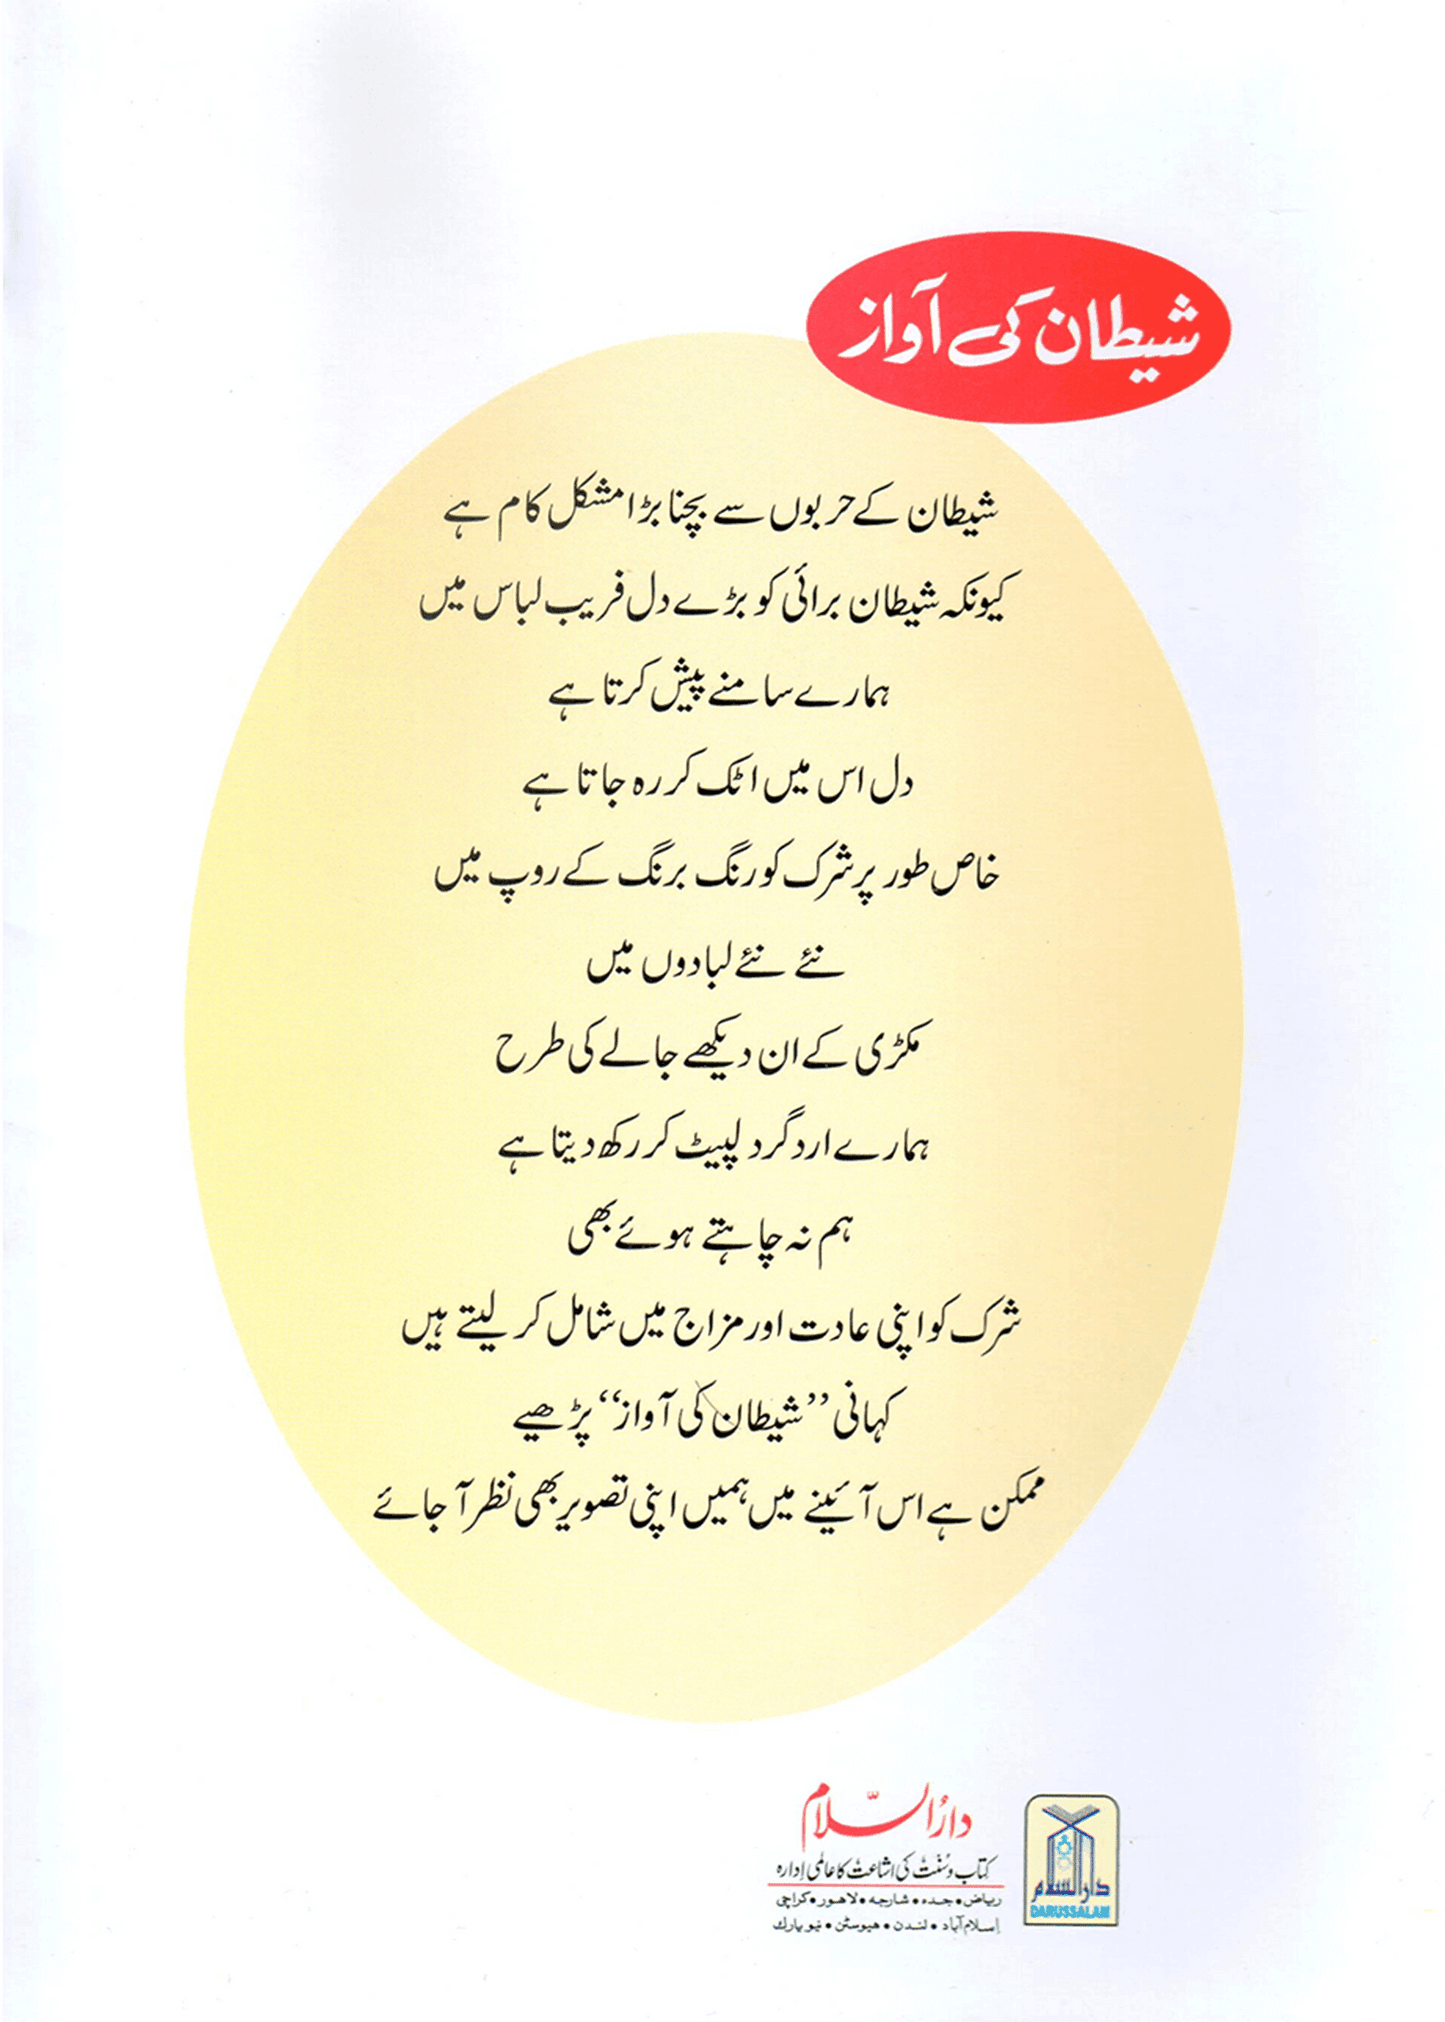 شیطان کی آواز
شیطان کے حربوں سے بچنا بڑا مشکل کام ہے
کیونکہ شیطان برائی کو بڑے دل فریب لباس میں
ہمارے سامنے پیش کرتا ہے
دل اس میں اٹک کر رہ جاتا ہے
خاص طور پر شرک کو رنگ برنگ کے روپ میں
نئے نئے لبادوں میں
مکڑی کے ان دیکھے جالے کی طرح
ہمارے ارد گرد لپیٹ کر رکھ دیتا ہے
ہم نہ چاہتے ہوئے بھی
شرک کو اپنی عادت اور مزاج میں شامل کر لیتے ہیں
کہانی ”شیطان کی آواز“ پڑھیے
ممکن ہے اس آئینے میں ہمیں اپنی تصویر بھی نظر آ جائے
دارُالسّلام
کتاب و سُنّت کی اشاعت کا عالمی اِدارہ
ریاض • جدہ • شارجہ • لاہور • کراچی
اِسلام آباد • لندن • ھیوسٹن • نیو یارک
دارالسلام
DARUSSALAM